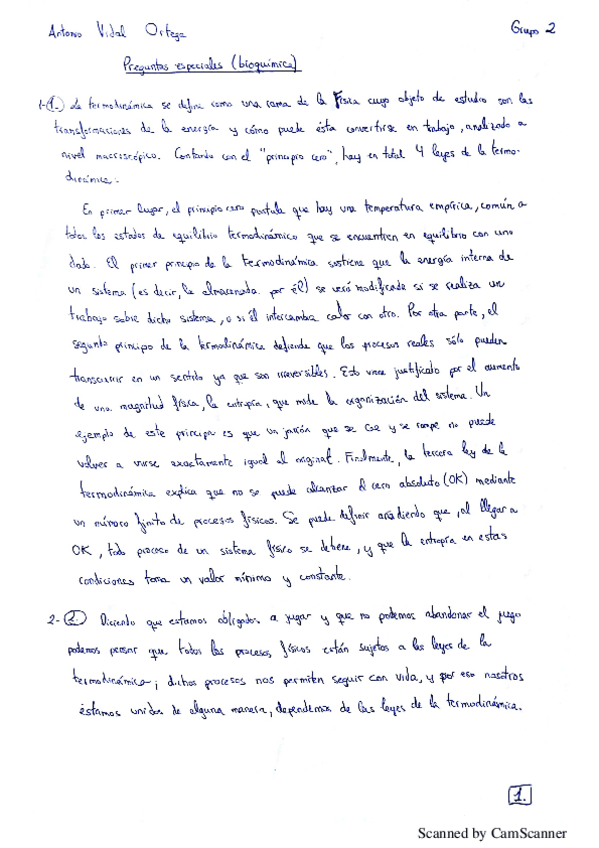 Antonio Vidal Ortega
Grupo 2
Preguntas especiales (bioquímica)
1-1. La termodinámica se define como una rama de la Física cuyo objeto de estudio son las
transformaciones de la energía y cómo puede ésta convertirse en trabajo, analizado a
nivel macroscópico. Contando con el "principio cero", hay en total 4 leyes de la termo-
dinámica.
En primer lugar, el principio cero postula que hay una temperatura empírica, común a
todos los estados de equilibrio termodinámico que se encuentren en equilibrio con uno
dado. El primer principio de la termodinámica sostiene que la energía interna de
un sistema (es decir, la almacenada por él) se verá modificada si se realiza un
trabajo sobre dicho sistema, o si él intercambia calor con otro. Por otra parte, el
segundo principio de la termodinámica defiende que los procesos reales sólo pueden
transcurrir en un sentido ya que son irreversibles. Esto viene justificado por el aumento
de una magnitud física, la entropía, que mide la organización del sistema. Un
ejemplo de este principio es que un jarrón que se cae y se rompe no puede
volver a unirse exactamente igual al original. Finalmente, la tercera ley de la
termodinámica explica que no se puede alcanzar el cero absoluto (0K) mediante
un número finito de procesos físicos. Se puede definir añadiendo que, al llegar a
0K, todo proceso de un sistema físico se detiene, y que la entropía en estas
condiciones toma un valor mínimo y constante.
2-2. Diciendo que estamos obligados a jugar y que no podemos abandonar el juego
podemos pensar que todos los procesos físicos están sujetos a las leyes de la
termodinámica; dichos procesos nos permiten seguir con vida, y por eso nosotros
estamos unidos de alguna manera, dependemos de las leyes de la termodinámica.
1.
Scanned by CamScanner